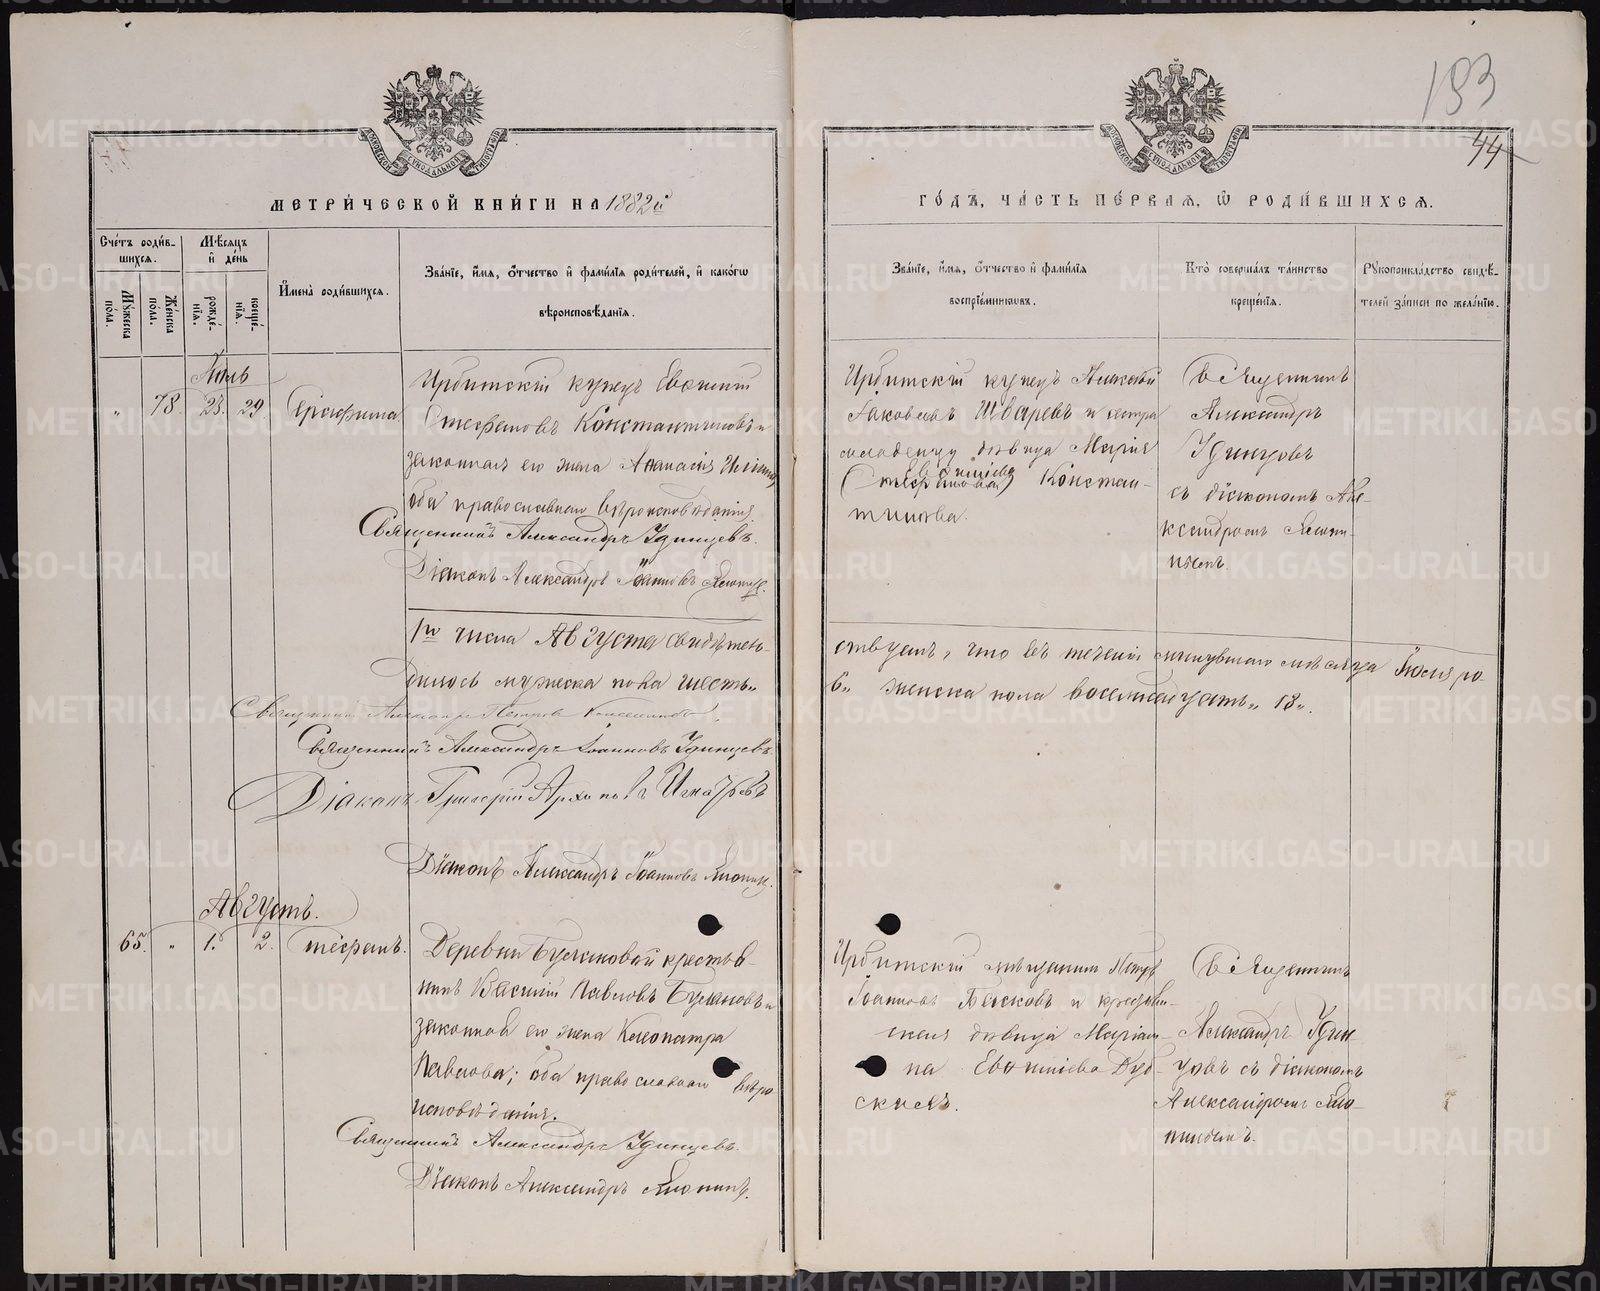 193
44
МЕТРИ́ЧЕСКОЙ КНИ́ГИ НА 1882й
ГО́ДЪ, ЧА́СТЬ ПЕ́РВАЯ, Ѡ РОДИ́ВШИХСЯ.
Сче́тъ роди́в-
шихся.
Му́жеска по́ла.
Же́нска пола.
Мѣ́сяцъ и де́нь
рожде́-
нїя.
креще́-
нїя.
И҆мена̀ роди́вшихся.
Зва́нїе, и҆́мя, ѻ҆́тчество и҆ фами́лїя роди́телей, и҆ како́гѡ
вѣроисповѣ́данїя.
Зва́нїе, и҆́мя, ѻ҆́тчество и҆ фами́лїя
воспрїе́мниковъ.
Кто̀ соверша́лъ та́инство
креще́нїя.
Рꙋкоприкла́дство свидѣ́-
телей за́писи по жела́нїю.
Іюль
" 78. 23. 29. Серафима
Ирбитскій купецъ Евѳимій
Стефановъ Константиновъ и
законная его жена Аѳанасія Ильина,
оба православнаго вѣроисповѣданія.
Священникъ Александръ Удинцевъ.
Діаконъ Александръ Іоанновъ
Ирбитскій купецъ Алексѣй
Іаковлевъ Шваревъ и сестра
младенцу дѣвица Марія
Евѳиміева
(Стефанова) Констан-
тинова.
Священникъ
Александръ
Удинцовъ
съ діакономъ Але-
ксандромъ
1го числа Августа свидѣтель-
ствуемъ, что въ теченіи минувшаго мѣсяца Іюля ро
дилось мужеска пола шесть "
6" женска пола восемнадцать " 18".
Священникъ Александръ Петровъ
Священникъ Александръ Іоанновъ Удинцевъ
Діаконъ Григорій Архиповъ Игнатьевъ
Діаконъ Александръ Іоанновъ
Августъ.
65. " 1. 2. Стефанъ.
Деревни Булановой крестья-
нинъ Василій Павловъ Булановъ и
законная его жена Клеопатра
Павлова; оба православнаго вѣро
исповѣданія.
Священникъ Александръ Удинцевъ.
Діаконъ Александръ
Ирбитскій мѣщанинъ Петръ
Іоанновъ и крестьян-
ская дѣвица Маріам-
на Евѳиміева Дуб-
ская.
Священникъ
Александръ Удин-
цовъ съ діакономъ
Александромъ
METRIKI.GASO-URAL.RU